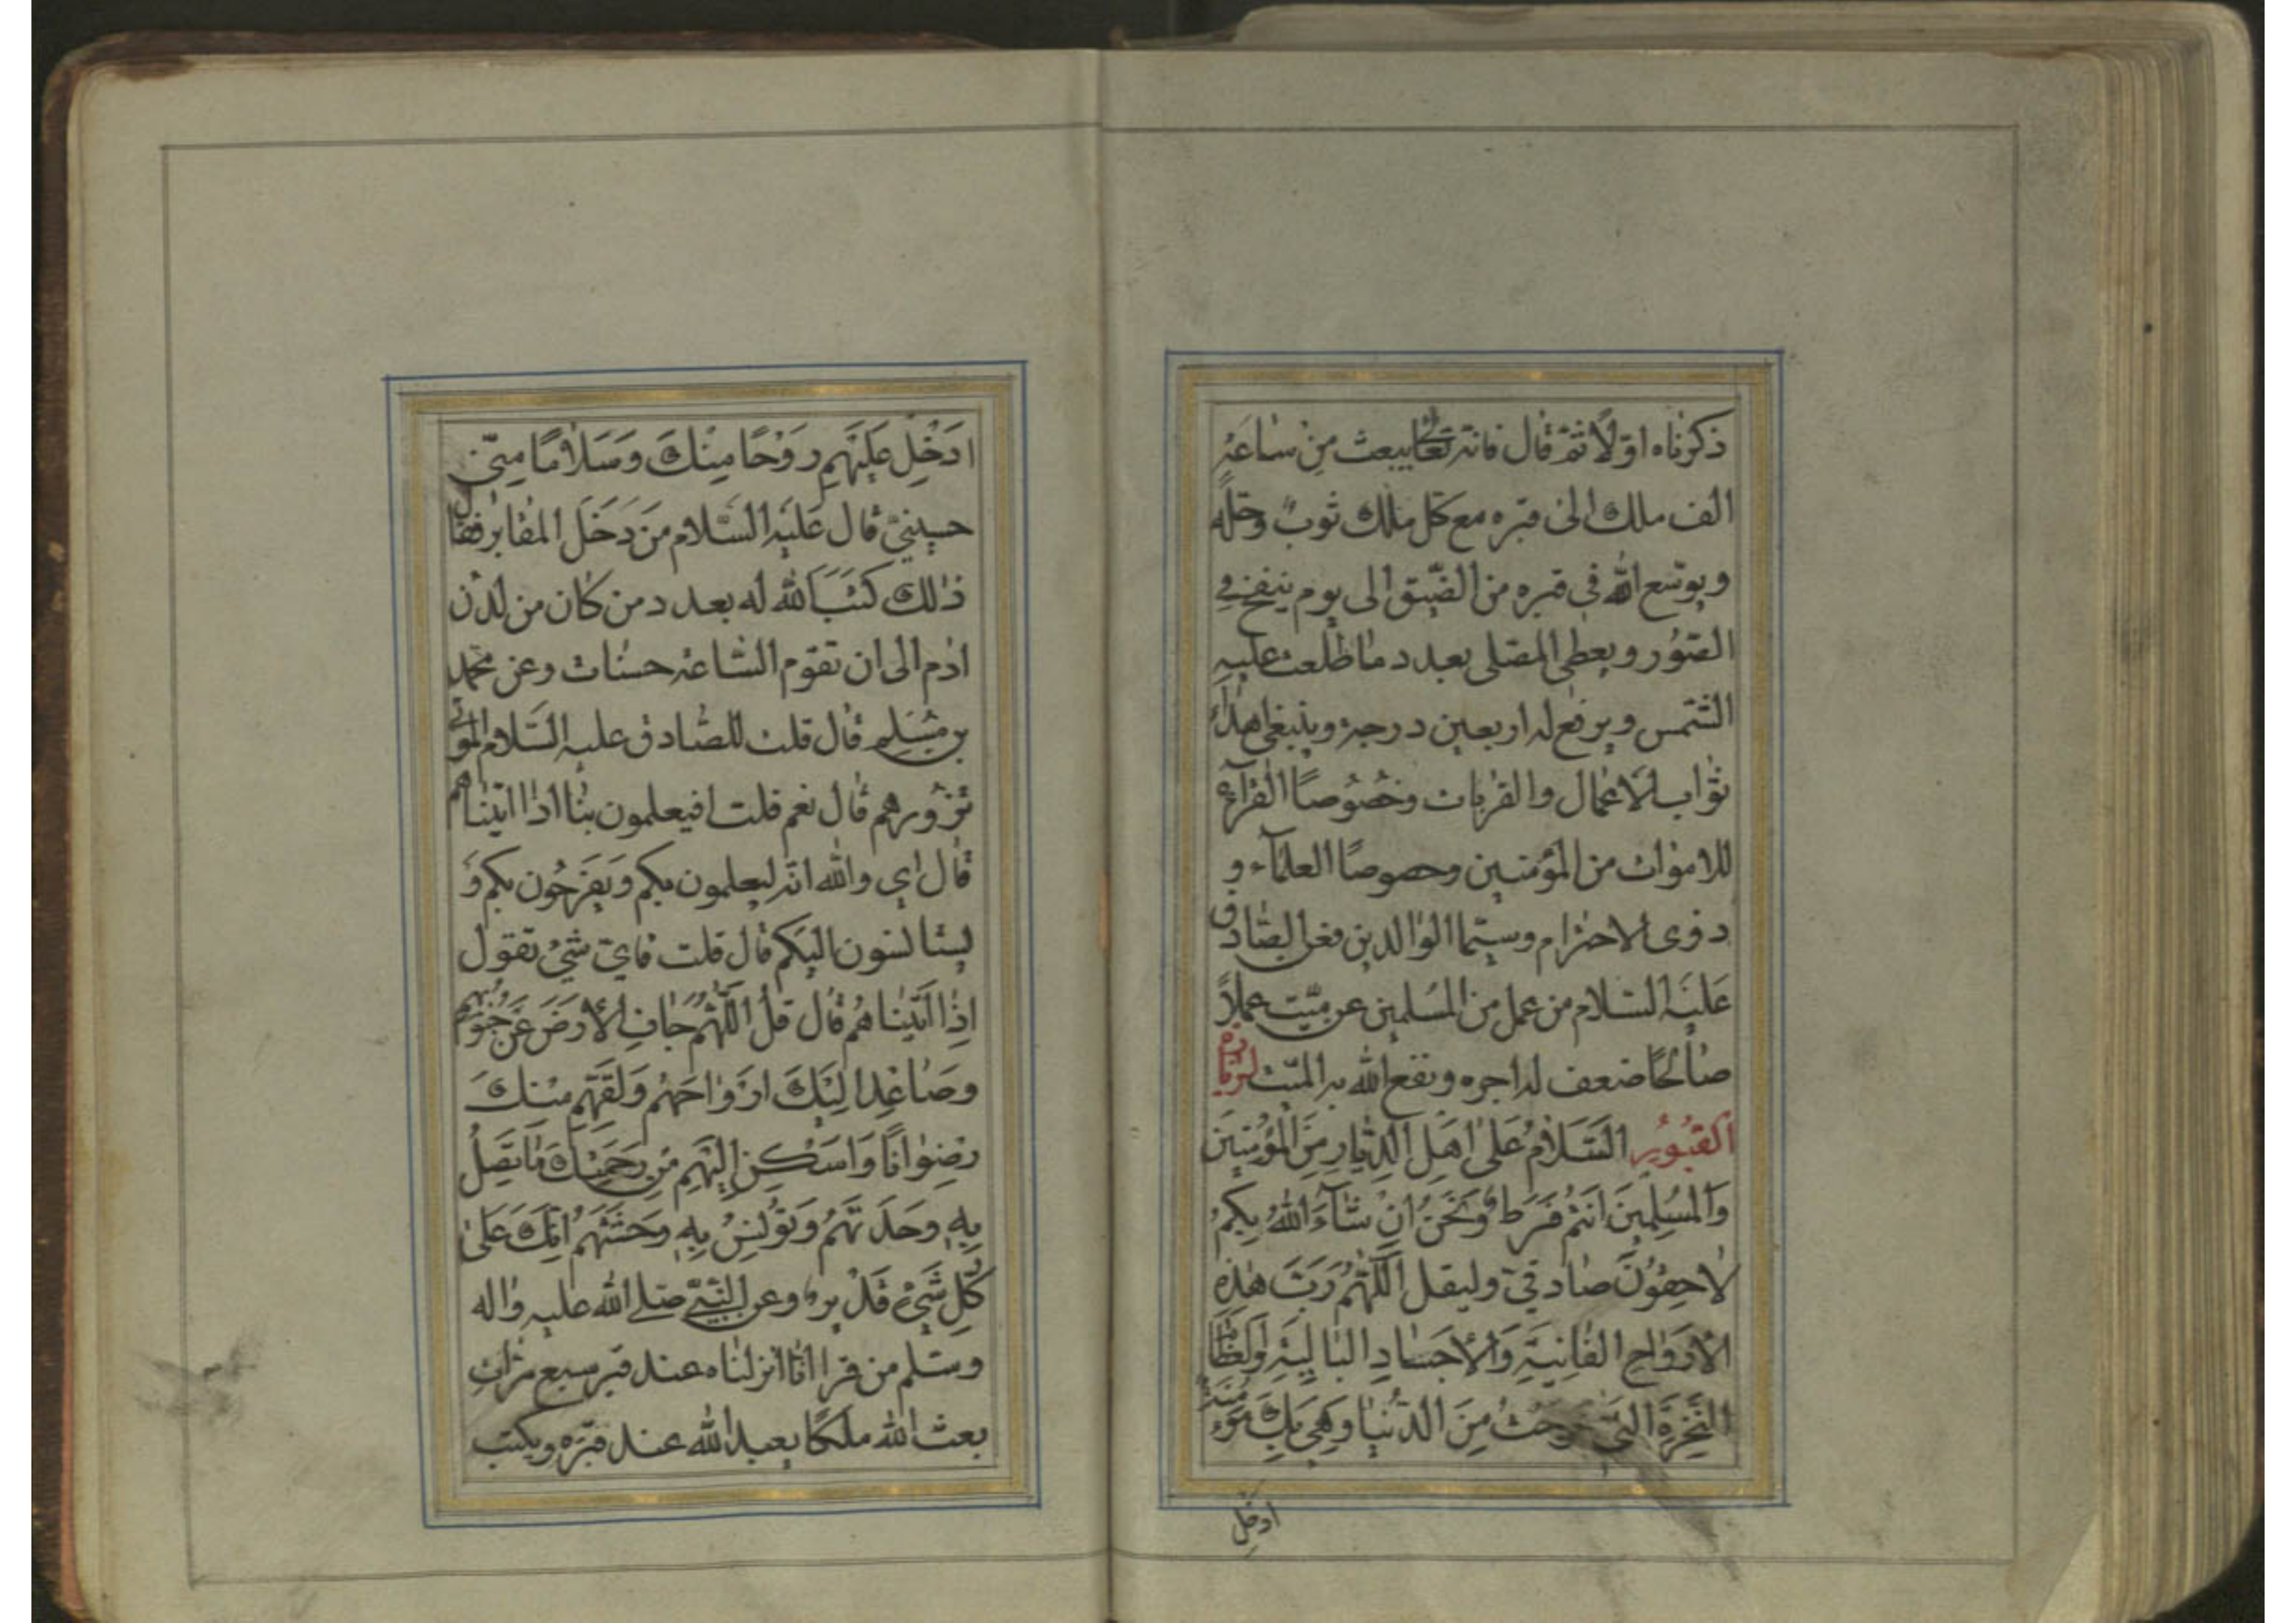 ذكرناه اوّلًا ثمّ قال فانه تعالى يبعث من ساعته
الف ملك الى قبره مع كل ملك ثوب وحلّه
ويوسّع الله في قبره من الضّيق الى يوم ينفخ في
الصّور ويعطى المصلى بعدد ما طلعت عليه
الشّمس ويرفع له اربعين درجة وينبغي اهداء
ثواب الاعمال والقربات وخصوصًا القرآءة
للاموات من المؤمنين وخصوصًا العلمآء و
ذوى الاحترام وسيّما الوالدين فعن الصّادق
عَليَه السّلام من عمل من المُسلمين عن ميّت عملاً
صالحًا ضعف له اجره ونفع الله به الميّت لزيارة
القُبُورِ السَّلامُ عَلى اَهلِ الدِّيارِ مِنَ المُؤمِنينَ
وَالمُسلِمينَ اَنتُم فَرَطٌ وَنَحنُ اِن شآءَ اللهُ بِكُم
لاحِقُونَ صادقيّ وليقل اَللّهُمَّ رَبَّ هذِهِ
الاَرواحِ الفانِيَةِ وَالاَجسادِ البالِيَةِ وَالعِظامِ
النَّخِرَةِ الَّتي خَرَجَت مِنَ الدُّنيا وَهِيَ بِكَ مُؤمِنَةٌ
ادخل
اَدخِل عَلَيهِم رَوحًا مِنكَ وَسَلامًا مِنّي
حسينيّ قال عَليَه السّلام مَن دَخَلَ المقابر فقال
ذلك كَتَبَ الله له بعدد من كان من لدن
ادم الى ان تقوم السّاعة حسنات وعن محمد
بن مسلم قال قلت للصّادق عليه السّلام الموتى
نزورهم قال نعم قلت افيعلمون بنا اذا اتيناهم
قال اي والله انه ليعلمون بكم ويفرحون بكم و
يستانسون اليكم قال قلت فايّ شئ تقول
اِذا اَتيناهُم قال قل اَللّهُمَّ جافِ الاَرضَ عَن جُنُوبِهِم
وصاعِد اِلَيكَ اَرواحَهُم وَلَقِّهِم مِنكَ
رِضوانًا وَاَسكِن اِلَيهِم مِن رَحمَتِكَ ما تَصِلُ
بِهِ وَحدَتَهُم وَتُونِسُ بِهِ وَحشَتَهُم اِنَّكَ عَلى
كُلِّ شَيءٍ قَديرٌ وعن النّبيّ صلى الله عليه واله
وسلم من قرا انا انزلناه عند قبر سبع مرّات
بعث الله ملكًا يعبد الله عند قبره ويكتب